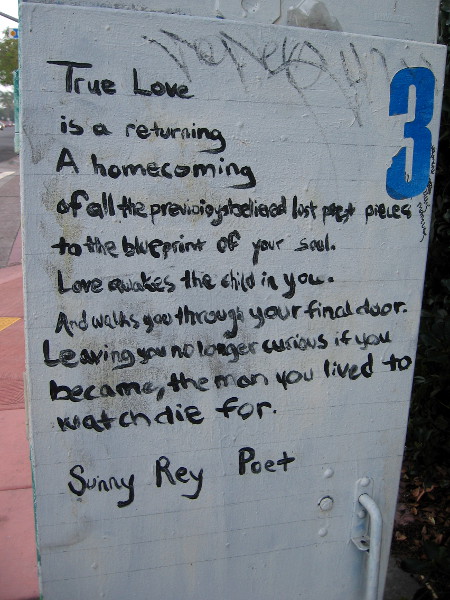 3
True Love
is a returning
A homecoming
of all the previously believed lost past pieces
to the blueprint of your soul.
Love awakes the child in you.
And walks you through your final door.
Leaving you no longer curious if you
became, the man you lived to
watch die for.
Sunny Rey Poet